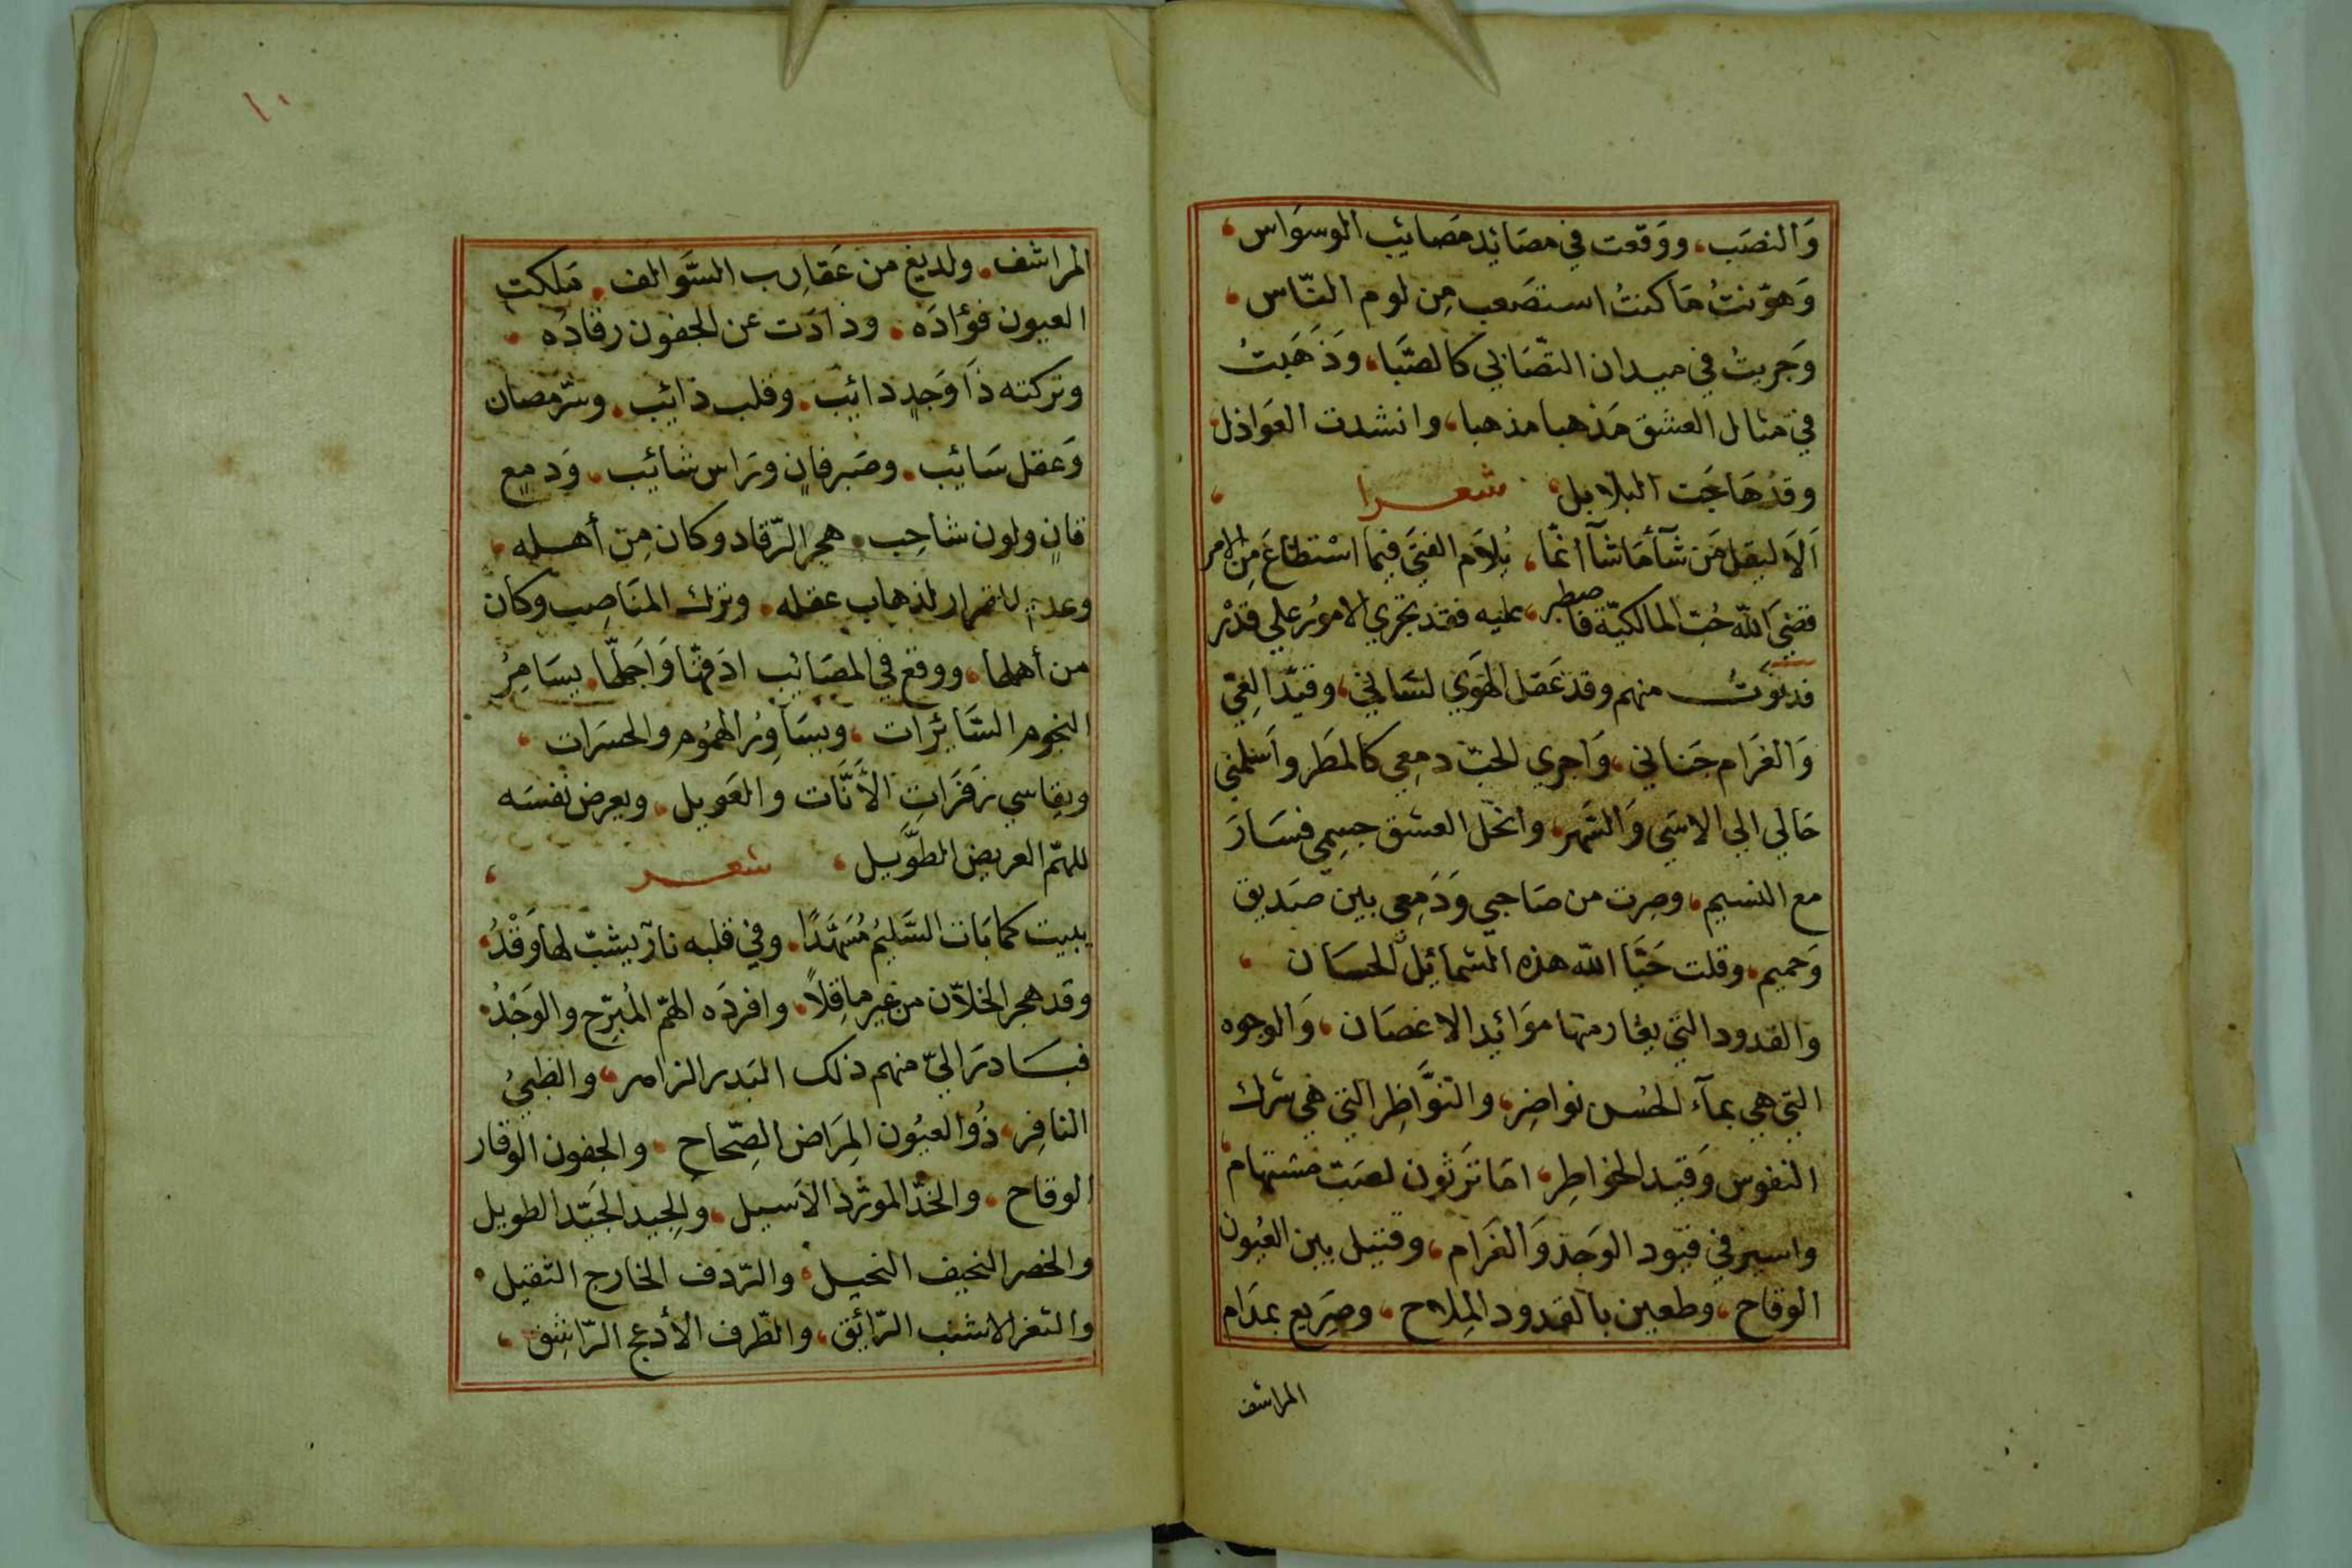 وَالنصَب، ووَقعت في مصَايد مصَائب الموسوَاس،
وَهوّنتُ مَا كنتُ استصَعب مِن لوم النّاس،
وَجريتُ في ميدان التصّابي كالصَّبَا، وَذَهَبتُ
في مثال العشق مَذهبا مذهبا، وانشدت العَوَاذل،
وقدْ هَاجَت البلابل، شعرا،
اَلَا ليقل مَن شآ مَا شآ انمّا، يُلاَم الفتَى فيما اسْتطَاعَ مِن الامر
قضَى اللّه حُبّ المالكيّة فاصطبر، عليه فقد تجري الامورُ علي قدْر
فدنوتُ منهم وقد عَقل الهَوَي لسَاني، وقيّد الغيّ
وَالغَرَام جَناني، وَاجري الحبّ دمعِي كالمطَر واَسْلَمني
حَالي الي الاسَي وَالسَّهر، وانحَل العشق جسِمي فسَارَ
مع النسيم، وصِرت من صَاحبي وَدَمعِي بين صَديق
وَحميم، وقلت حَيَّا اللّه هذه الشمائِل الحسَان،
والقدود التي يغار منها موَائِد الاغصَان، وَالوجوه
التي هي بمآء الحُسن نواضِر، والنوَّاظِر التي هي شرك
النفوس وَقيد الخواطِر، امَا تَرثون لصَبّ مستهام،
واسيرفي قيود الوَجد وَالغَرام، وقتيل بين العُيون
الوقاح، وطعين بالقدود المِلاح، وصَريع بمدَام
المراشف
١٠
المراشف، ولديغ من عَقارِب السَّوالف، مَلكت
العيون فؤادَه، وذادَت عن الجفون رقادُه،
وتركته ذَا وَجدٍ دائِب، وقلب ذائِب، وسّر مصان
وَعقل سَائِب، وصَبر فانٍ ورَاس شائِب، وَدمعٍ
قانٍ ولون شاحِب، هجر الرّقاد وكان مِن أهله،
وعدم القرار لذهاب عقله، وترك المنَاصِب وكان
من أهلها، ووقع في المصَائِب ادَقّها وَاَجَلّها، يسَامِرُ
النجوم السَّائِرَات، ويسَاوِرُ الهمُوم والحسَرات،
ويقاسي زفَرَاتِ الأنَّات والعَويل، ويعرض نفسَه
للهمّ العريض الطوَيل، شعر،
يبيت كما بَات السَّليمُ مُسَهَّدًا، وفي قلبه نار يشبّ لها وَقْدُ،
وقد هجر الخلاّن من غير ما قِلاً، وافردَه الهمّ المُبرّح والوَجْدُ،
فبَادرَ اليّ منهم ذلك البَدر الزاهر، والظبيُ
النافِر، ذُو العيُون المِرَاض الصِّحاح، والجفون الوقار
الوقاح، والخدّ المورّد الاَسيل، والجِيد الجَيّد الطويل
والخصر النحيف النحيل، والرّدف الخارج الثقيل،
والثغر الاشنب الرّائِق، والطّرف الأدعج الرّاشِق،